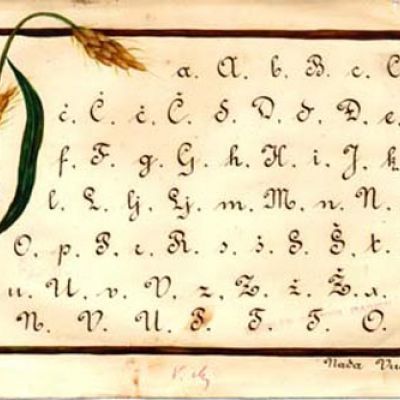 a. A. b. B. c. C
č. Č. ć. Ć. d. D. đ. Đ. e.
f. F. g. G. h. H. i. J. k
l. L. lj. Lj. m. M. n. N.
O. p. P. r. R. s. š. S. Š. t.
u. U. v. V. z. Z. ž. Ž. x.
N. V. U. P. T. F. O.
Nada